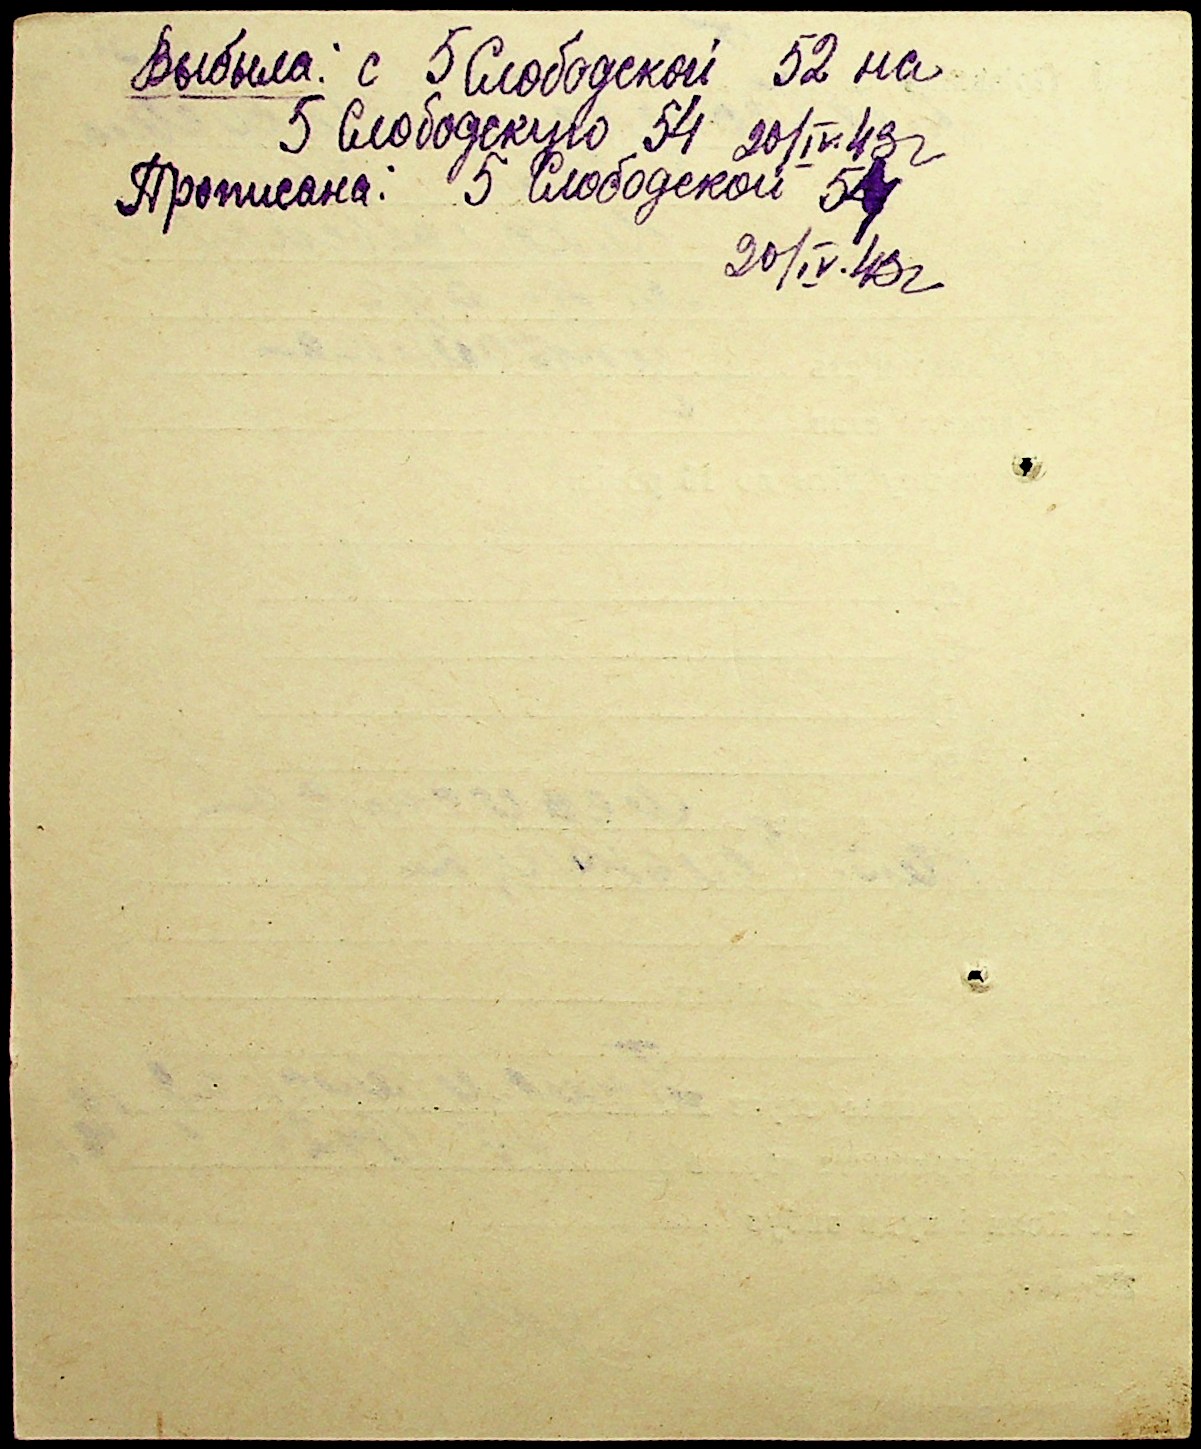 Выбыла: с 5 Слободской 52 на
5 Слободскую 54 20/IV.43г
Прописана: 5 Слободской 54
20/IV.43г